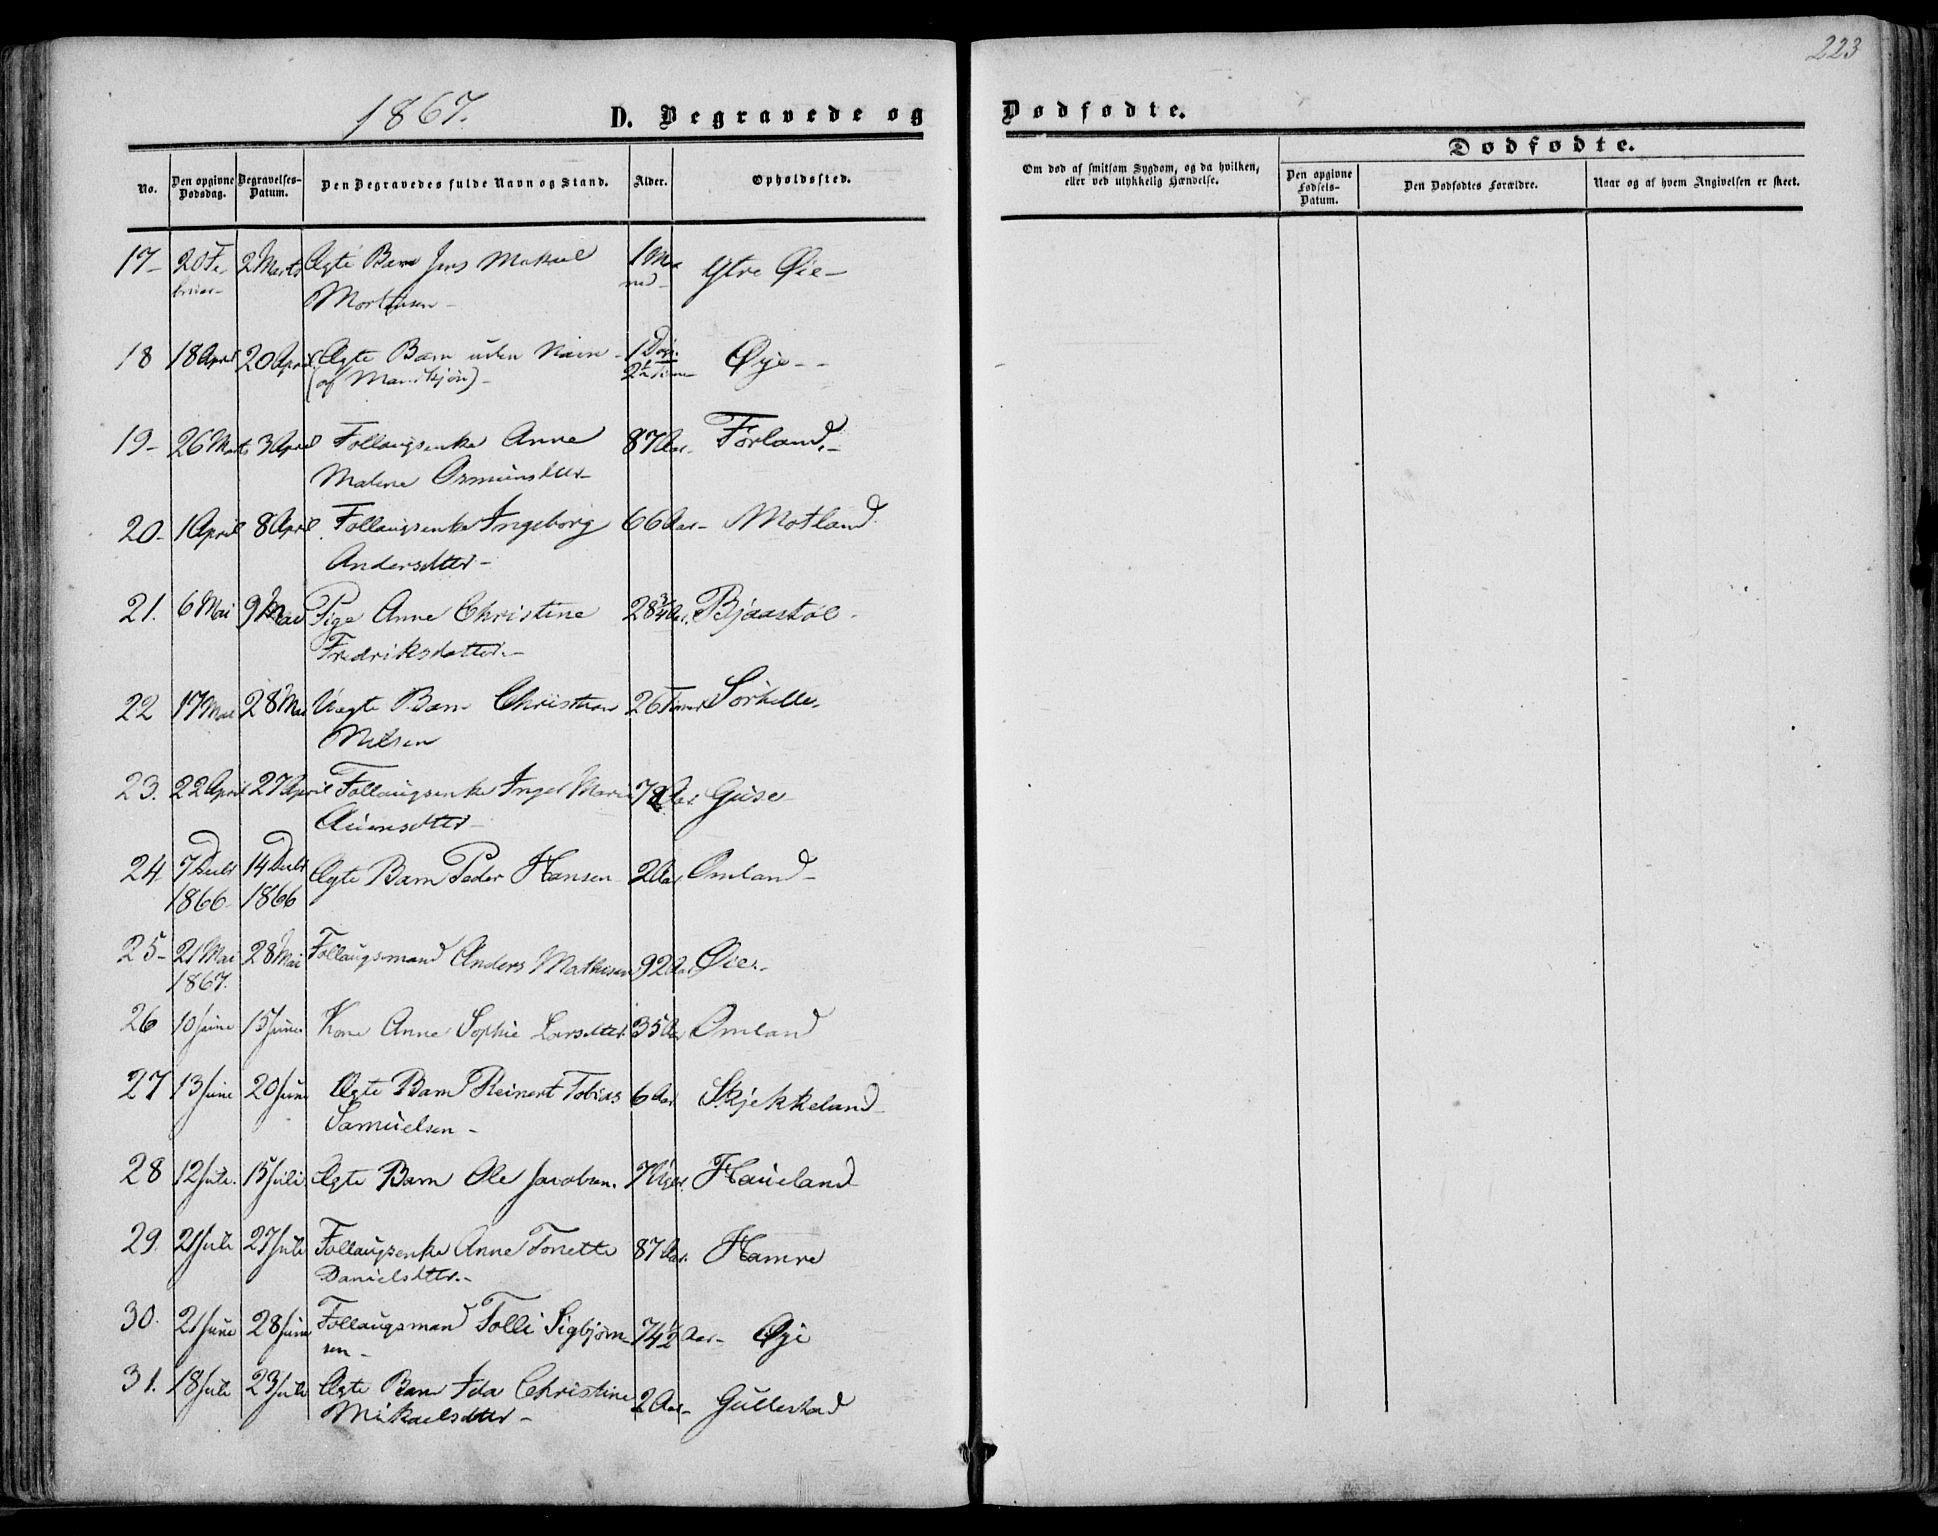 223
1867.
D. Begravede og
Dødfødte.
No.
Den opgivne Dødsdag.
Begravelses-Datum.
Den Begravedes fulde Navn og Stand.
Alder.
Opholdssted.
Om død af smitsom Sygdom, og da hvilken,
eller ved ulykkelig Hændelse.
Dødfødte.
Den opgivne Fødsels-Datum.
Den Dødfødtes Forældre.
Naar og af hvem Angivelsen er skeet.
17- 20 Fe- 2 Marts Ægte Barn Jens Mikael 1 Ma- Ytre Øie-
bruar- Mortensen- ned-
18 18 April 20 April Ægte Barn uden Navn- 1 Døgn Øye--
(af Mandkjøn)- 2½ Time-
19- 26 Marts 3 April Follaugsenke Anne 87 Aar- Førland.-
Malene Osmundsdtter-
20- 1 April 8 April Follaugsenke Ingeborg 66 Aar- Motland
Andersdtter-
21. 6 Mai 9 Mai Pige Anne Christine 28¾ Aar. Bjaastøl-
Fredriksdatter.-
22 17 Mai 28 Mai Uægte Barn Christian 26 Timer Sørhelle.
Nilsen
23. 22 April 27 April Follaugsenke Inger Marie Aar. Guse-
24 7 Decbr 14 Decbr Ægte Barn Peder Hansen 2 Aar Omland-
1866- 1866
25- 21 Mai 28 Mai Follaugsmand Anders Mathisen 92 Aar Øie.-
1867.
26 10 June 15 June Kone Anne Sophie Larsdtter 35 Aar Omland
27 13 June 20 June Ægte Barn Reinert Tobias 6 Aar Skjekkeland-
Samuelsen-
28 12 Juli. 15 Juli Ægte Barn Ole Jacobsen. 7 Uger. Haueland-
29. 21 Juli 27 Juli Follaugsenke Anne Tonette 87 Aar. Hamre
Danielsdtter.-
30. 21 June 28 June Follaugsmand Tolli Sigbjørn- 74½ Aar- Øye
sen-
31. 18 Juli 23 Juli Ægte Barn Ida Christine 2 Aar- Gullestad
Mikaelsdtter-